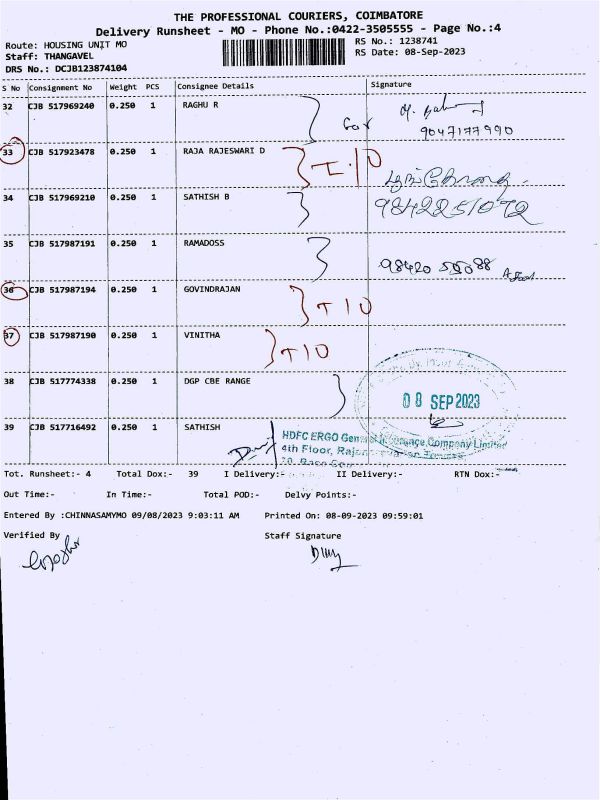 THE PROFESSIONAL COURIERS, COIMBATORE
Delivery Runsheet - MO - Phone No.:0422-3505555 - Page No.:4
Route: HOUSING UNIT MO
RS No.: 1238741
Staff: THANGAVEL
RS Date: 08-Sep-2023
DRS No.: DCJB123874104
S No Consignment No Weight PCS Consignee Details Signature
32 CJB 517969240 0.250 1 RAGHU R
9047177990
33 CJB 517923478 0.250 1 RAJA RAJESWARI D
34 CJB 517969210 0.250 1 SATHISH B
9842251072
35 CJB 517987191 0.250 1 RAMADOSS
36 CJB 517987194 0.250 1 GOVINDRAJAN
37 CJB 517987190 0.250 1 VINITHA
38 CJB 517774338 0.250 1 DGP CBE RANGE
08 SEP 2023
39 CJB 517716492 0.250 1 SATHISH
HDFC ERGO General Insurance Company Limited
4th Floor,
Tot. Runsheet:- 4 Total Dox:- 39 I Delivery:- II Delivery:- RTN Dox:-
Out Time:- In Time:- Total POD:- Delvy Points:-
Entered By :CHINNASAMYMO 09/08/2023 9:03:11 AM Printed On: 08-09-2023 09:59:01
Verified By Staff Signature